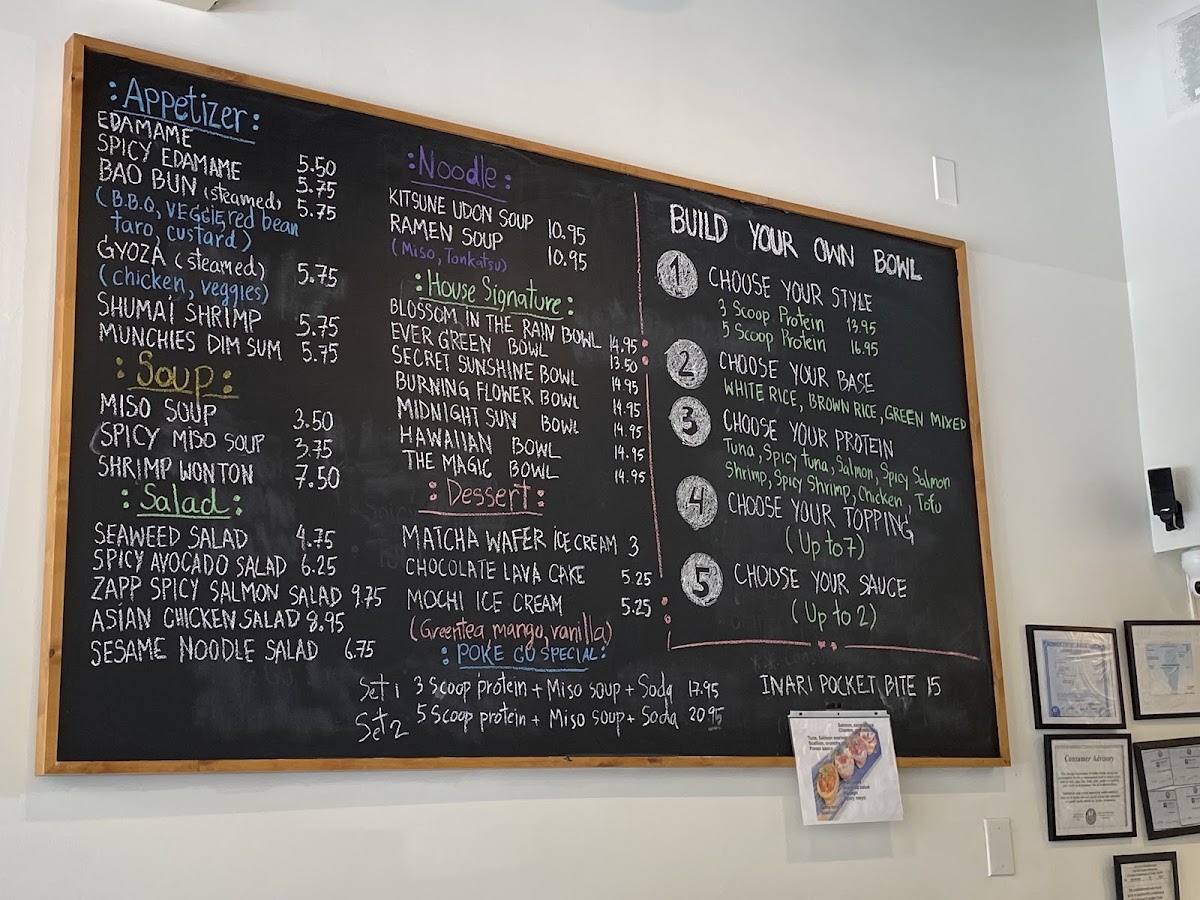 : Appetizer :
EDAMAME 5.50
SPICY EDAMAME 5.75
BAO BUN (steamed) 5.75
(B.B.Q, VEGGIE, red bean
taro, custard)
GYOZA (steamed) 5.75
(chicken, veggies)
SHUMAI SHRIMP 5.75
MUNCHIES DIM SUM 5.75
: Soup :
MISO SOUP 3.50
SPICY MISO SOUP 3.75
SHRIMP WONTON 7.50
: Salad :
SEAWEED SALAD 4.75
SPICY AVOCADO SALAD 6.25
ZAPP SPICY SALMON SALAD 9.75
ASIAN CHICKEN SALAD 8.95
SESAME NOODLE SALAD 6.75
: Noodle :
KITSUNE UDON SOUP 10.95
RAMEN SOUP 10.95
(Miso, Tonkatsu)
: House Signature :
BLOSSOM IN THE RAIN BOWL 14.95
EVER GREEN BOWL 13.50
SECRET SUNSHINE BOWL 14.95
BURNING FLOWER BOWL 14.95
MIDNIGHT SUN BOWL 14.95
HAWAIIAN BOWL 14.95
THE MAGIC BOWL 14.95
: Dessert :
MATCHA WAFER ICE CREAM 3
CHOCOLATE LAVA CAKE 5.25
MOCHI ICE CREAM 5.25
(Greentea mango, vanilla)
: POKE GO SPECIAL :
Set 1 3 Scoop protein + Miso soup + Soda 17.95
Set 2 5 Scoop protein + Miso soup + Soda 20.95
BUILD YOUR OWN BOWL
1 CHOOSE YOUR STYLE
3 Scoop Protein 13.95
5 Scoop Protein 16.95
2 CHOOSE YOUR BASE
WHITE RICE, BROWN RICE, GREEN MIXED
3 CHOOSE YOUR PROTEIN
Tuna, Spicy tuna, Salmon, Spicy Salmon
Shrimp, Spicy Shrimp, Chicken, Tofu
4 CHOOSE YOUR TOPPING
(Up to 7)
5 CHOOSE YOUR SAUCE
(Up to 2)
INARI POCKET BITE 15
Consumer Advisory